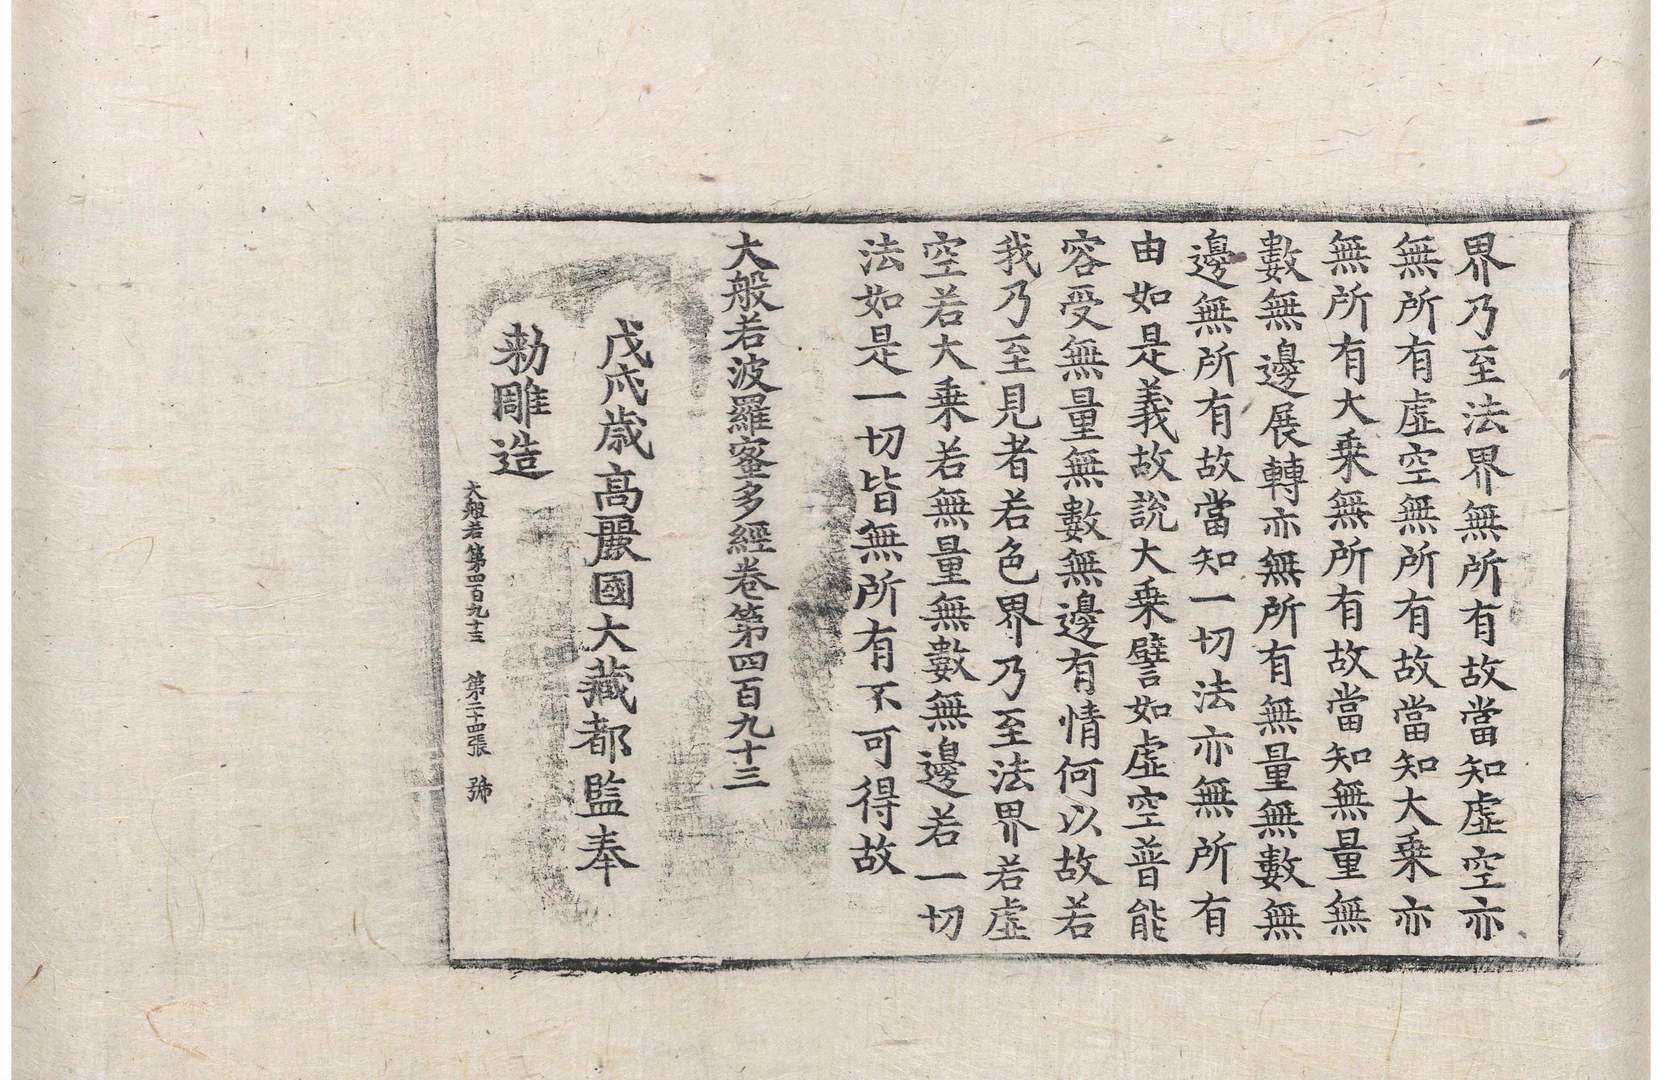 界乃至法界無所有故當知虛空亦
無所有虛空無所有故當知大乘亦
無所有大乘無所有故當知無量無
數無邊展轉亦無所有無量無數無
邊無所有故當知一切法亦無所有
由如是義故說大乘譬如虛空普能
容受無量無數無邊有情何以故若
我乃至見者若色界乃至法界若虛
空若大乘若無量無數無邊若一切
法如是一切皆無所有不可得故
大般若波羅蜜多經卷第四百九十三
戊戌歲高麗國大藏都監奉
勅雕造
大般若第四百九十三 第二十四張 號